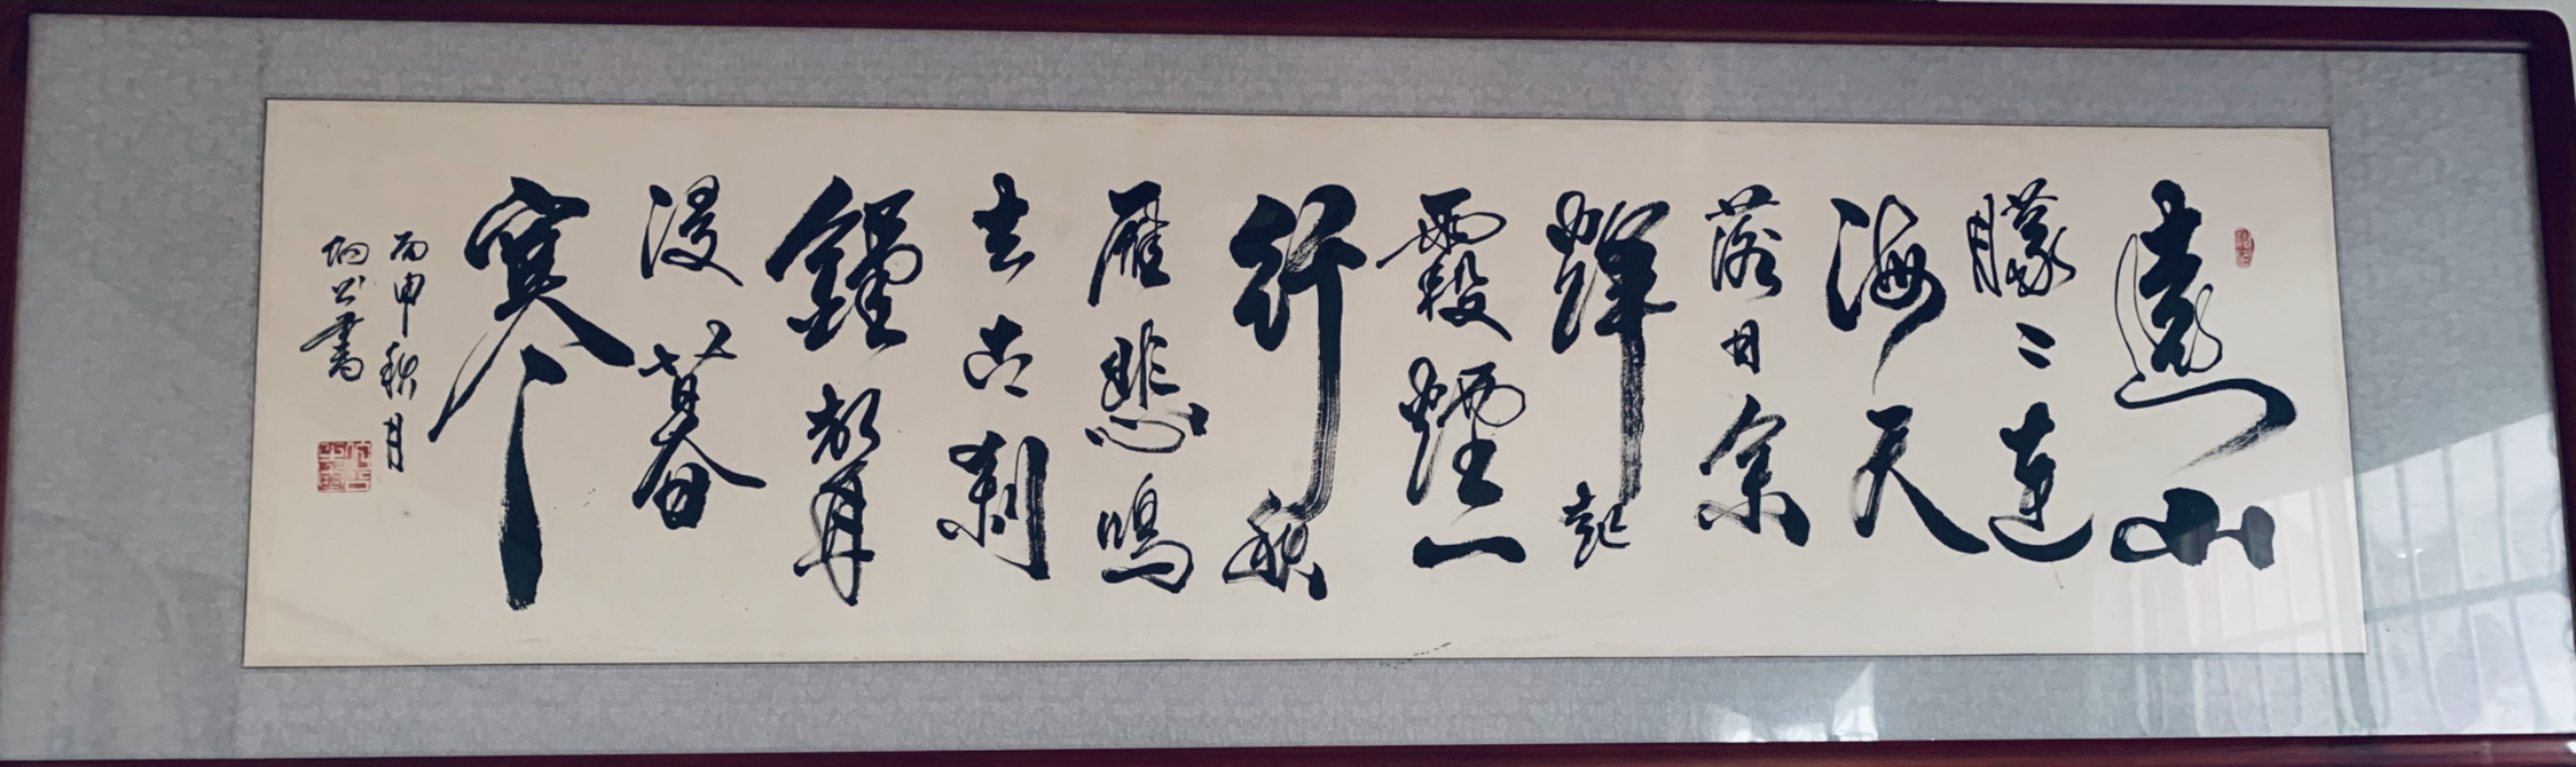 遠山
朦〻連
海天
落日余
輝起
霞煙一
行秋
雁悲鳴
去古剎
鐘聲
浸暮
寒
丙申秋月
書